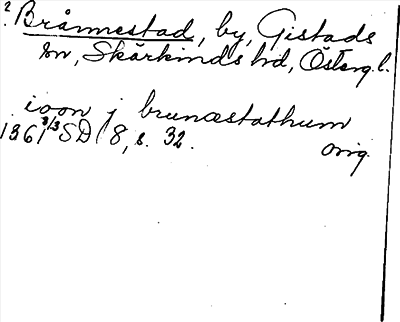 ? Brånnestad, by, Gistads
sn, Skärkinds hd, Österg. l.
ioon j brunæstathum
1361 3/3 SD 8, s. 32. orig.